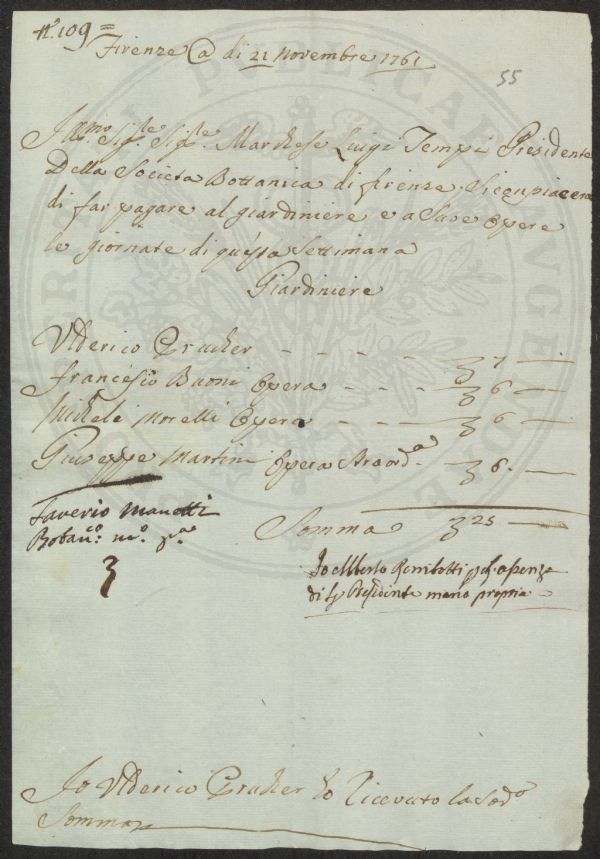 N.° 109 =
Firenze @ di 21 Novembre 1761
55
Ill.mo Sig.re Sig.re Marchese Luigi Tempi Presidente
Della Societa Bottanica di firenze, Si compiacera
di far pagare al giardiniere e a Sue Opere
le giornate di questa Settimana
Giardiniere
Ulderico Prucker - - - - 7 —
Francesco Buoni Opera - - - 6 —
Michele Morelli Opera - - - 6 —
Giuseppe Martini Opera Straord.a 6. —
Saverio Manetti
Botan.co m.o p.a
Somma 25 —
Io Alberto Rimbotti p. l'assenza
di Sig. Presidente mano propria
Io Ulderico Prucker ho Ricevuto la Sud.a
Somma